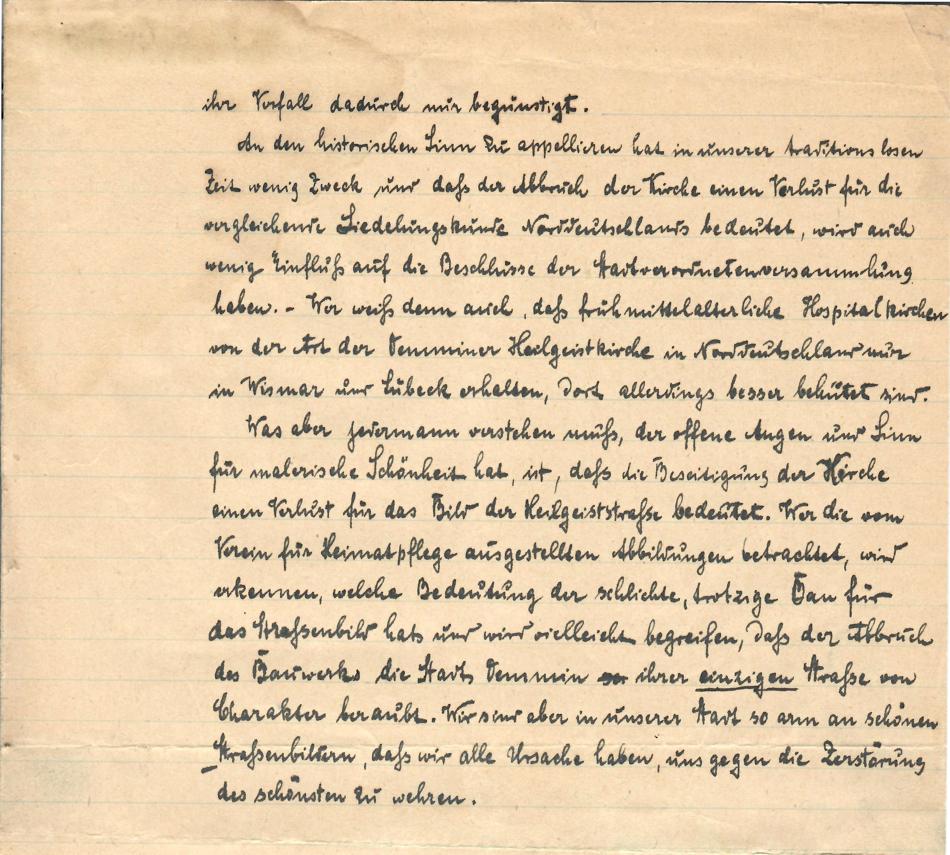 ihr Verfall dadurch nur begünstigt.
An den historischen Sinn zu appellieren hat in unserer traditionslosen
Zeit wenig Zweck und daß der Abbruch der Kirche einen Verlust für die
vergleichende Siedelungskunde Norddeutschlands bedeutet, wird auch
wenig Einfluß auf die Beschlüsse der Stadtverordnetenversammlung
haben. – Wer weiß denn auch, daß frühmittelalterliche Hospitalkirchen
von der Art der Demminer Heilgeistkirche in Norddeutschland nur
in Wismar und Lübeck erhalten, dort allerdings besser behütet sind.
Was aber jedermann verstehen muß, der offene Augen und Sinn
für malerische Schönheit hat, ist, daß die Beseitigung der Kirche
einen Verlust für das Bild der Heilgeiststraße bedeutet. Wer die vom
Verein für Heimatpflege ausgestellten Abbildungen betrachtet, wird
erkennen, welche Bedeutung der schlichte, trotzige Bau für
das Straßenbild hat und wird vielleicht begreifen, daß der Abbruch
des Bauwerks die Stadt Demmin ihrer einzigen Straße von
Charakter beraubt. Wir sind aber in unserer Stadt so arm an schönen
Straßenbildern, daß wir alle Ursache haben, uns gegen die Zerstörung
des schönsten zu wehren.